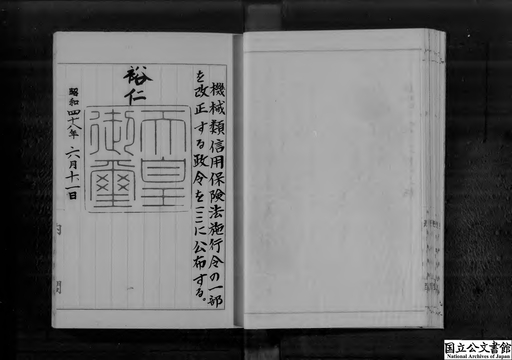 機械類信用保険法施行令の一部
を改正する政令をここに公布する。
裕仁
天皇
御璽
昭和四十八年六月十一日
国立公文書館
National Archives of Japan